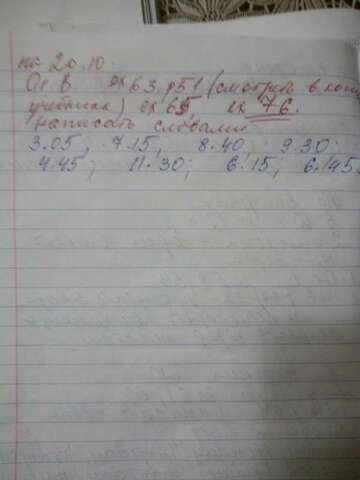 на 20.10.
ex 63 p 51 (смотреть в конце
учебника) ex 65, ex 76.
написать словами
3.05, 7.15, 8.40, 9.30;
4.45; 11.30; 6.15, 6.45.